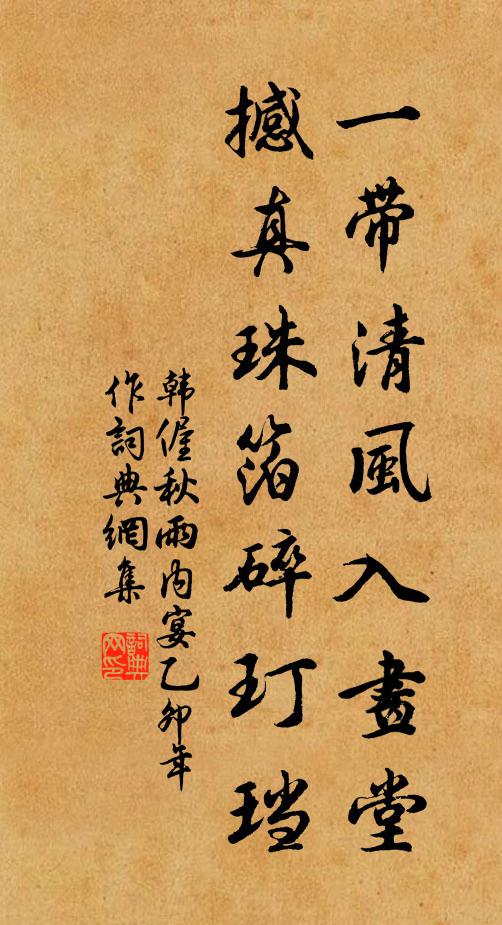 一帶清風入畫堂
撼真珠箔碎玎珰
韓偓秋雨內宴乙卯年
作詞典網集
詞典网印